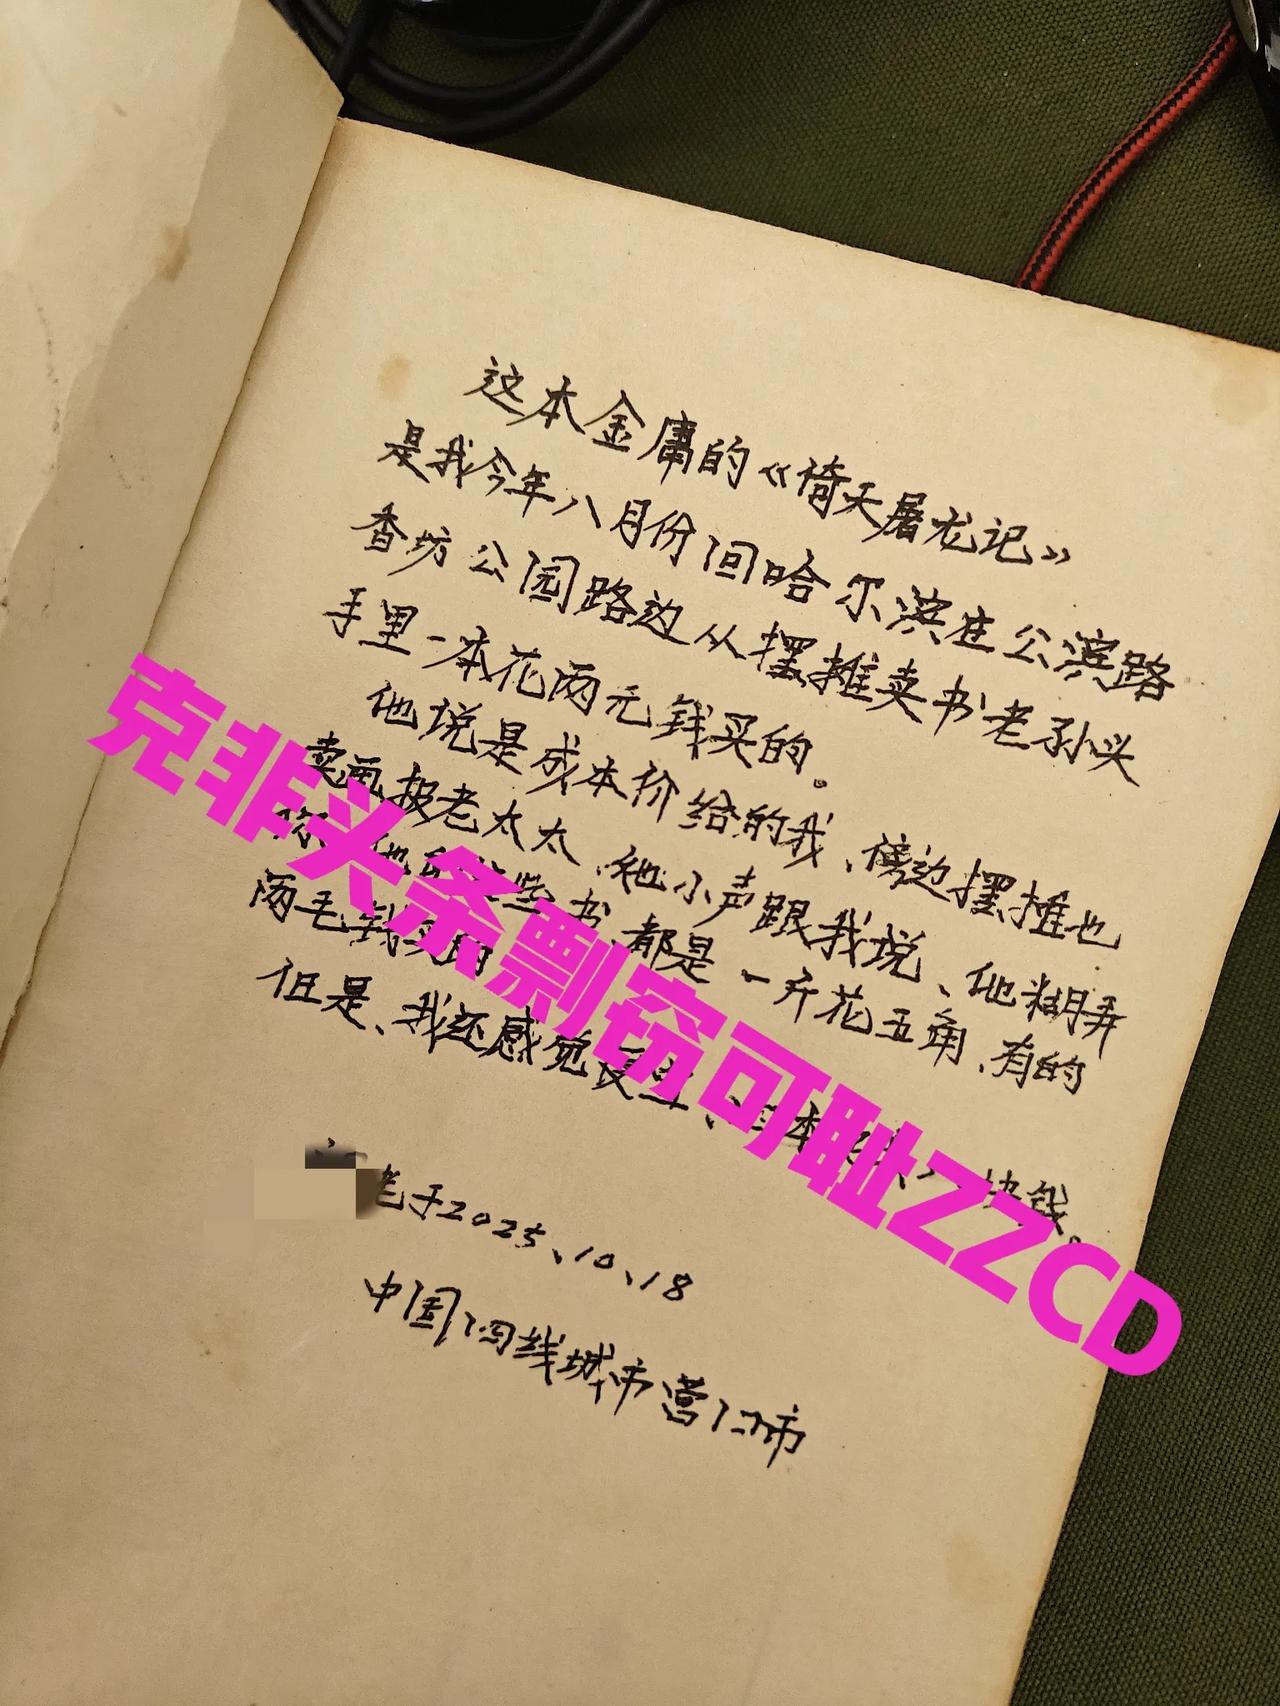 这本金庸的《倚天屠龙记》
是我今年八月份回哈尔滨在公滨路
香坊公园路边从摆摊卖书老孙头
手里一本花两元钱买的。
他说是成本价给的我、傍边摆摊也
卖画报老太太、她小声跟我说、他糊弄
你、他的这些书、都是一斤花五角、有的
两毛钱买的
但是、我还感觉
块钱。
老于2025、10、18
中国四线城市营口市
克非头条剽窃可耻ZZCD